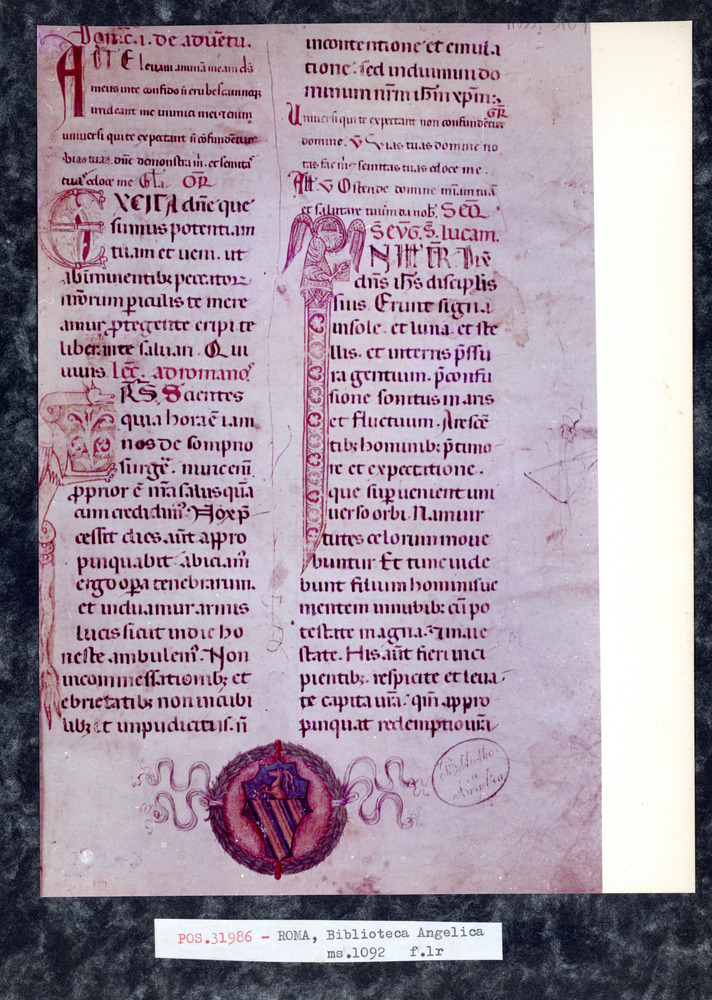 Domc̄.i. de aduētu.
AD TE leuaui animā meam ds̄
meus inte confido n̄ erubescam neq;
irrideant me inimici mei etenim
uniuersi qui te expectant n̄ cōfundētur
uias tuas dn̄e demonstra m̄. et semita
tuas edoce me Gl̄a OR̄
EXCITA dn̄e que
sumus potentiam
tuam et ueni. ut
ab imminentib; peccatorꝝ
nr̄orum ꝑiculis te mere
amur ꝓtegente eripi te
liberante saluari. Qui
uiuis. Lēc. ad romanos
FR̄S. Scientes
quia hora ē iam
nos de sompno
surgē. nunc eni
ꝓprior ē nr̄a salus quā
cum credidim᷒. Nox p̄
cessit dies aūt appro
pinquabit. abiciam
ergo opa tenebrarum.
et induamur armis
lucis sicut in die ho
neste ambulem᷒. Non
in commessationib; et
ebrietatib; non in cubi
lib; et impudicitiis. n̄
in contentione et emula
tione. sed induimini do
minum nr̄m ih̄m xp̄m. GR̄
Uniuersi qui te expectant non confundētur
domine. V̄ Uias tuas domine no
tas fac m̄ et semitas tuas edoce me.
All̄. V̄ Ostende domine m̄iam tuā
et salutare tuum da nob̄. SEQ̄
S̄ EVḠ. S̄. Lucam.
IN ILL̄. TR̄. Dix̄
dn̄s ih̄s discipulis
suis. Erunt signa
in sole. et luna. et ste
llis. et in terris p̄ssu
ra gentium. p̄ confu
sione sonitus maris
et fluctuum. Arescē
tib; hominib; p̄ timo
re et expectatione.
que supuenient uni
uerso orbi. Nam uir
tutes celorum moue
buntur Et tunc uide
bunt filium hominis ue
nientem in nubib; cū po
testate magna. et maie
state. His aūt fieri inci
pientib; respicite et leua
te capita urā. qm̄ appro
pinquat redemptio urā
Bibliothe
ca
Angelica
POS.31986 - ROMA, Biblioteca Angelica
ms.1092 f.1r